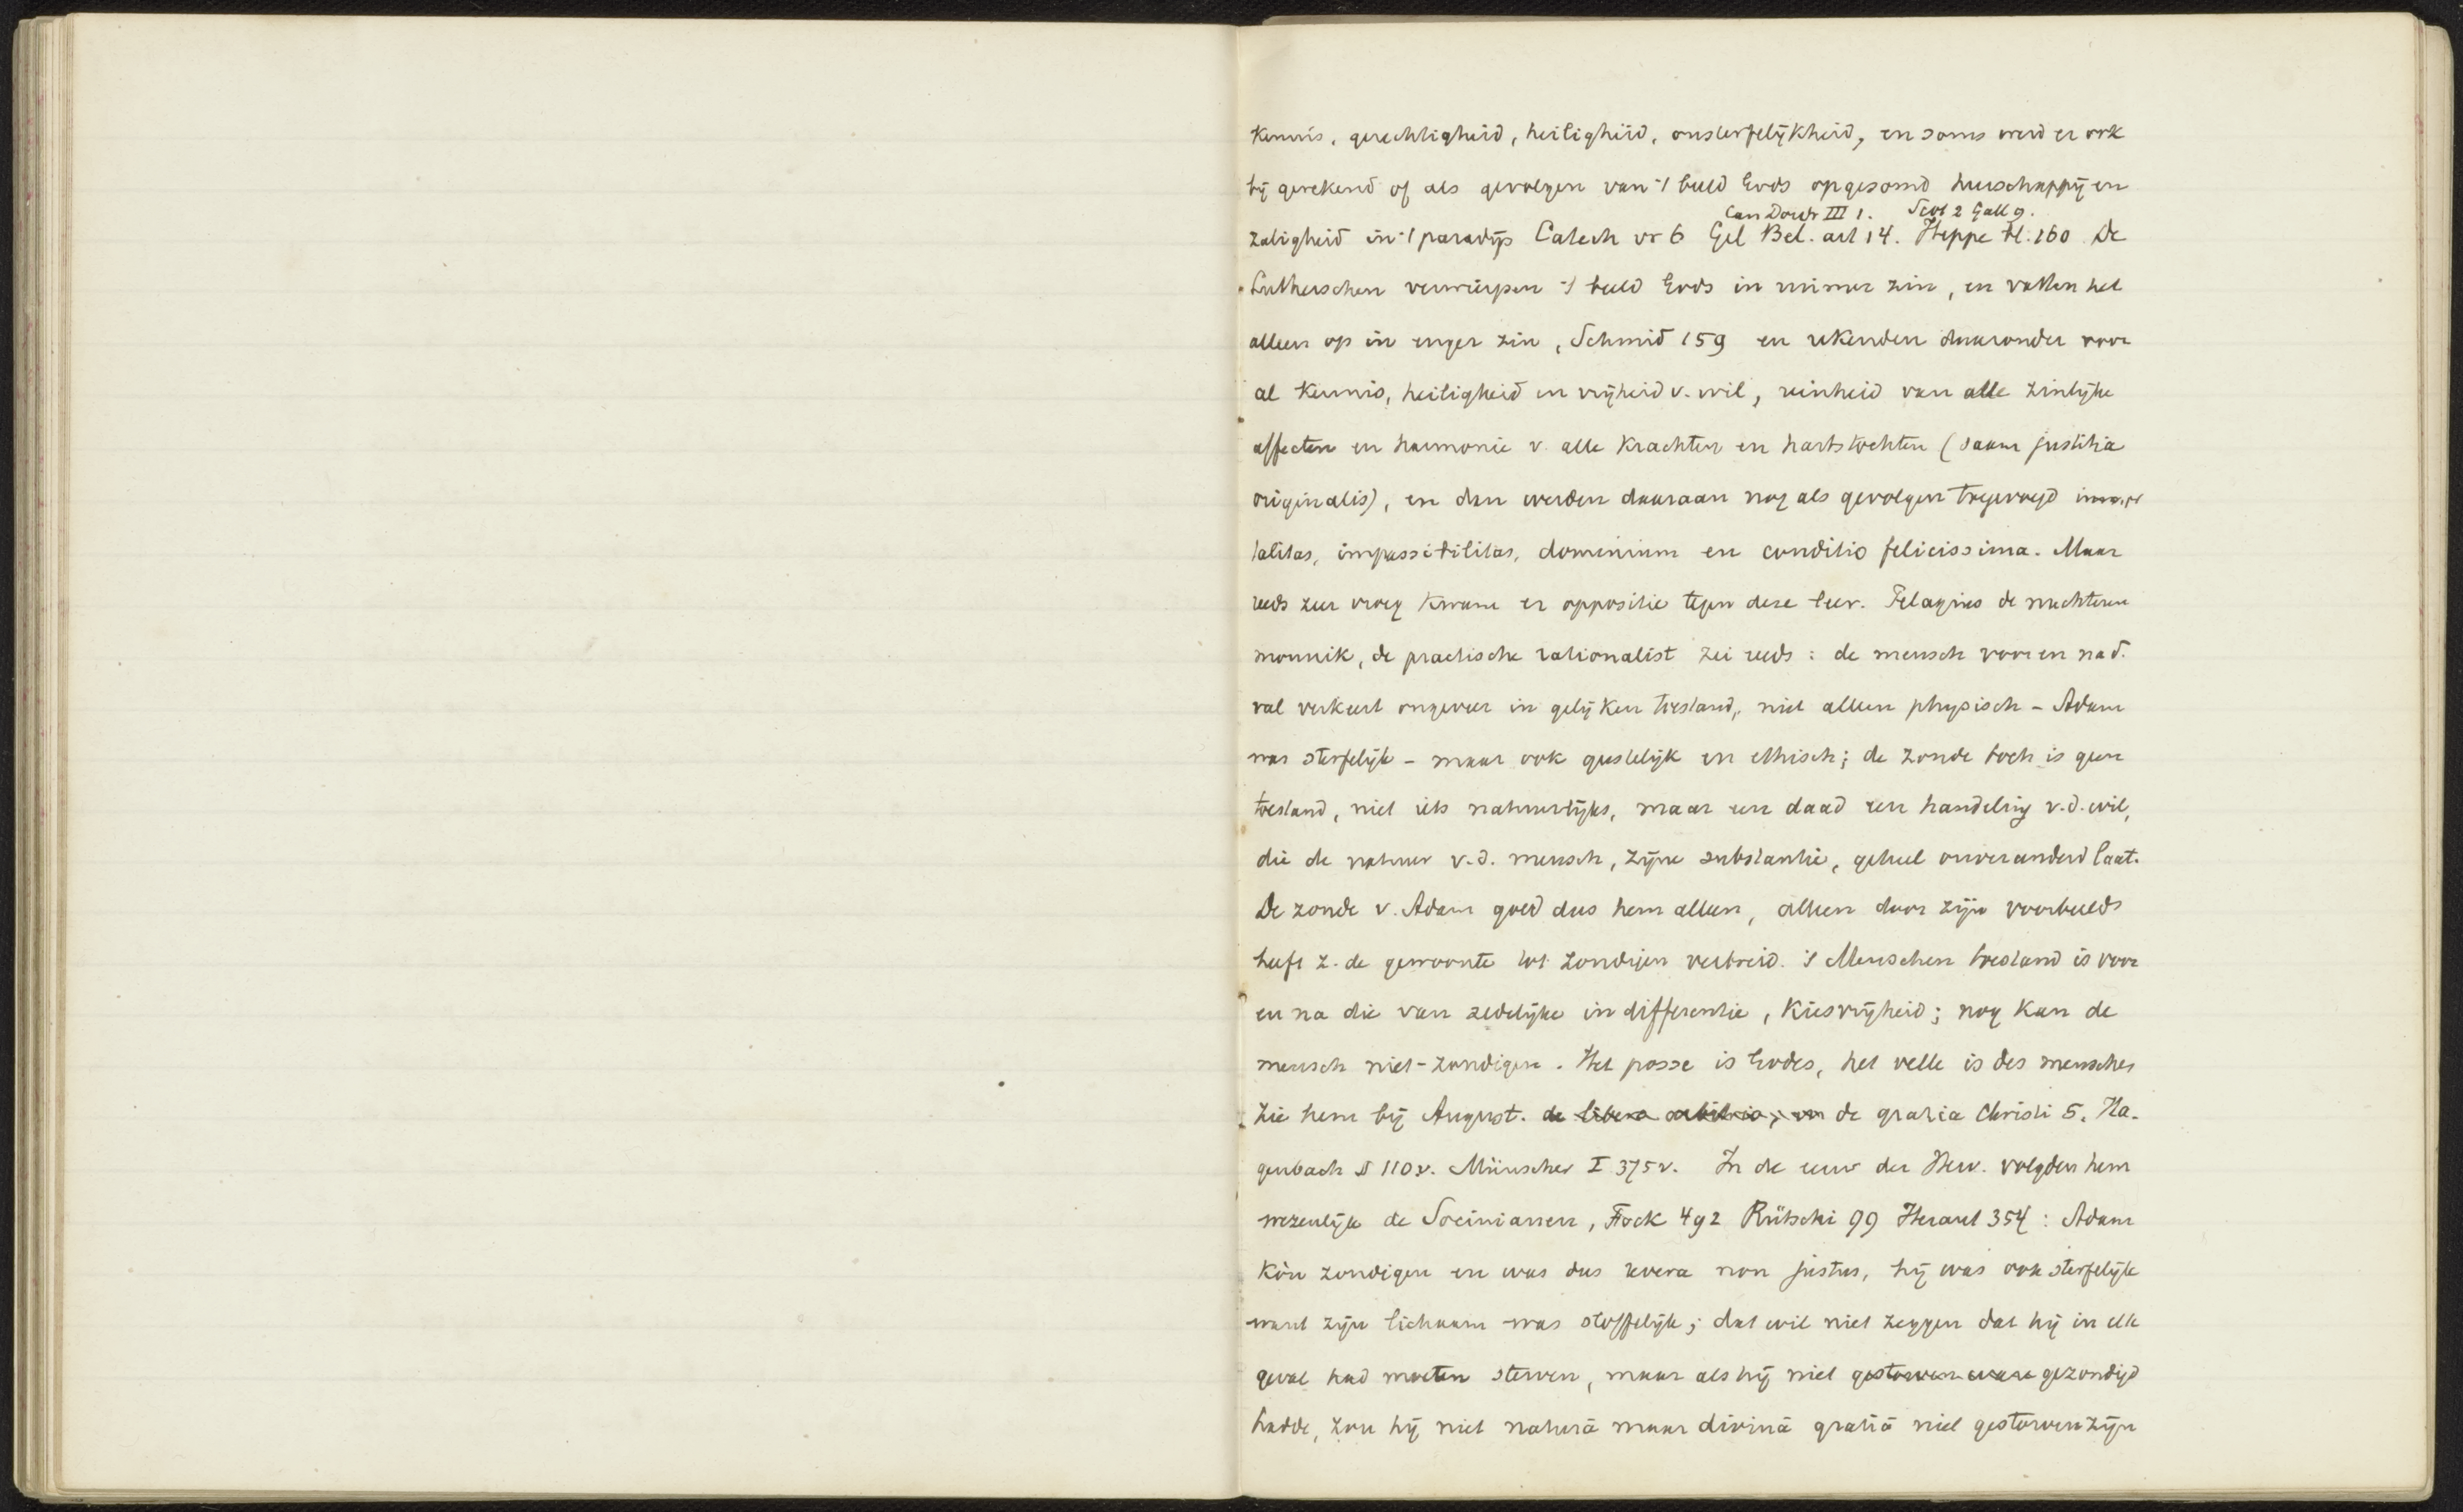 kennis, gerechtigheid, heiligheid, onsterfelijkheid, en soms werd er ook
bij gerekend of als gevolgen van 't beeld Gods opgesomd heerschappij en
Can Dordr III 1. Scot 2 Gall 9.
zaligheid in 't paradijs Catech vr 6 Gel Bel. art 14. Heppe bl. 160 De
Lutherschen verwierpen 't beeld Gods in ruimer zin, en vatten het
alleen op in enger zin, Schmid 159 en rekenden daaronder voor
al kennis, heiligheid en vrijheid v. wil, reinheid van alle zinlijke
affecten en harmonie v. alle krachten en hartstochten (saam justitia
originalis), en dan werden daaraan nog als gevolgen toegevoegd immor
talitas, impassibilitas, dominium en conditio felicissima. Maar
reeds zeer vroeg kwam er oppositie tegen deze leer. Pelagius de nuchtere
monnik, de practische rationalist zei reeds: de mensch voor en na d.
val verkeert ongeveer in gelijken toestand, niet alleen physisch - Adam
was sterfelijk - maar ook geestelijk en ethisch; de zonde toch is geen
toestand, niet iets natuurlijks, maar een daad een handeling v.d. wil,
die de natuur v.d. mensch, zijne substantie, geheel onveranderd laat.
De zonde v. Adam goed dus hem alleen, alleen door zijn voorbeeld
heeft z. de gewoonte tot zondigen verbreid. 's Menschen toestand is voor
en na die van zedelijke indifferentie, kiesvrijheid; nog kan de
mensch niet-zondigen. Het posse is Godes, het velle is des menschen
zie hem bij August. de libero arbitrio, en de gratia Christi 5. Ha-
genbach § 110v. Münscher I 375v. In de eeuw der Herv. volgden hem
wezenlijk de Socinianen, Fock 492 Rütschi 99 Heraut 354: Adam
kòn zondigen en was dus revera non justus, hij was ook sterfelijk
want zijn lichaam was stoffelijk; dat wil niet zeggen dat hij in elk
geval had moeten sterven, maar als hij niet gestorven ware gezondigd
hadde, zou hij niet naturâ maar divinâ gratiâ niet gestorven zijn